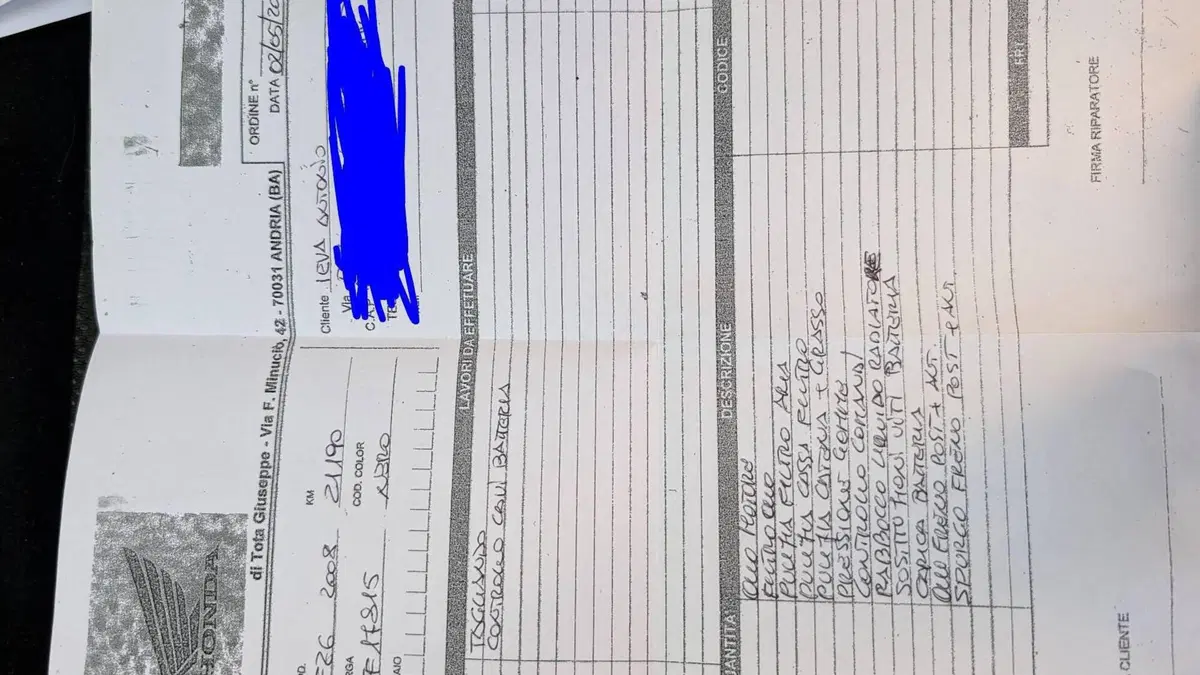 HONDA
di Tota Giuseppe - Via F. Minucio, 42 - 70031 ANDRIA (BA)
ORDINE n°
DATA 02/05/20
Cliente IEVA ANTONIO
Via
KM
21190
2008
COD. COLOR
NERO
LAVORI DA EFFETUARE
TAGLIANDO
CONTROLLO CAVI BATTERIA
DESCRIZIONE
CODICE
OLIO MOTORE
FILTRO OLIO
PULIZIA FILTRO ARIA
PULIZIA CASSA FILTRO
PULIZIA CATENA + GRASSO
PRESSIONE GOMME
CONTROLLO COMANDI
RABBOCCO LIQUIDO RADIATORE
SOSTITUZIONI VITI BATTERIA
CARICA BATTERIA
OLIO FRENO POST + ANT.
SPURGO FRENO POST + ANT.
FRT
CLIENTE
FIRMA RIPARATORE